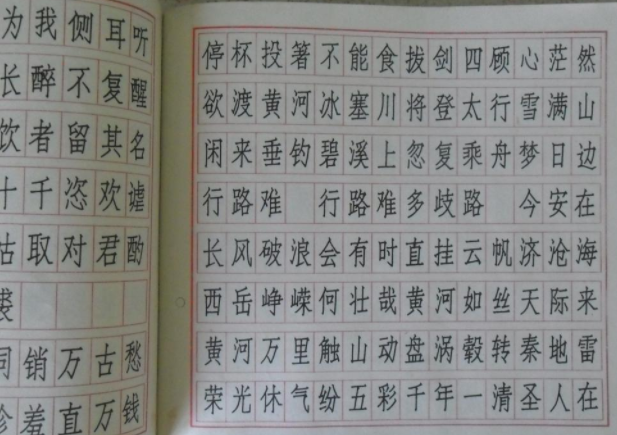 为我侧耳听
长醉不复醒
饮者留其名
十千恣欢谑
沽取对君酌
裘
同销万古愁
珍羞直万钱
停杯投箸不能食拔剑四顾心茫然
欲渡黄河冰塞川将登太行雪满山
闲来垂钓碧溪上忽复乘舟梦日边
行路难 行路难多歧路 今安在
长风破浪会有时直挂云帆济沧海
西岳峥嵘何壮哉黄河如丝天际来
黄河万里触山动盘涡毂转秦地雷
荣光休气纷五彩千年一清圣人在